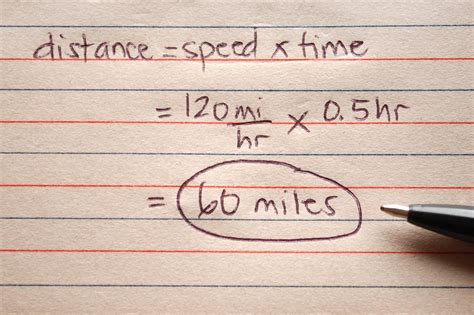 distance = speed x time
= 120 mi/hr x 0.5hr
= 60 miles